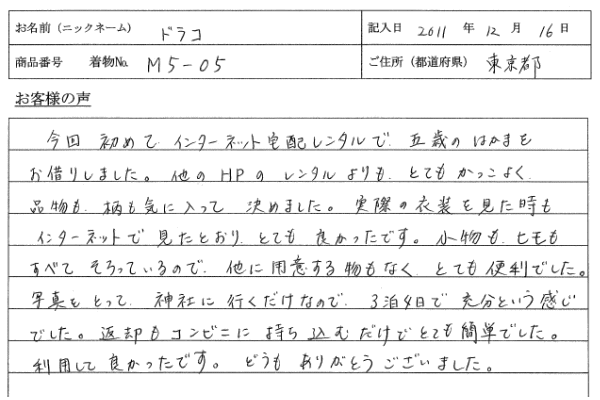 お名前（ニックネーム） ドラコ 記入日 2011 年 12 月 16 日
商品番号 着物No. M5-05 ご住所（都道府県） 東京都
お客様の声
今回 初めて インターネット宅配レンタルで、五歳の はかまを
お借りしました。他の HPの レンタルよりも、とても かっこよく、
品物も、柄も気に入って 決めました。実際の衣装を見た時も
インターネットで 見たとおり、とても 良かったです。小物も、ヒモも
すべて そろっているので、他に用意する物もなく とても便利でした。
写真をとって、神社に行くだけなので、3泊4日で 充分という感じ
でした。返却もコンビニに 持ち込むだけでとても簡単でした。
利用して良かったです。どうも ありがとうございました。